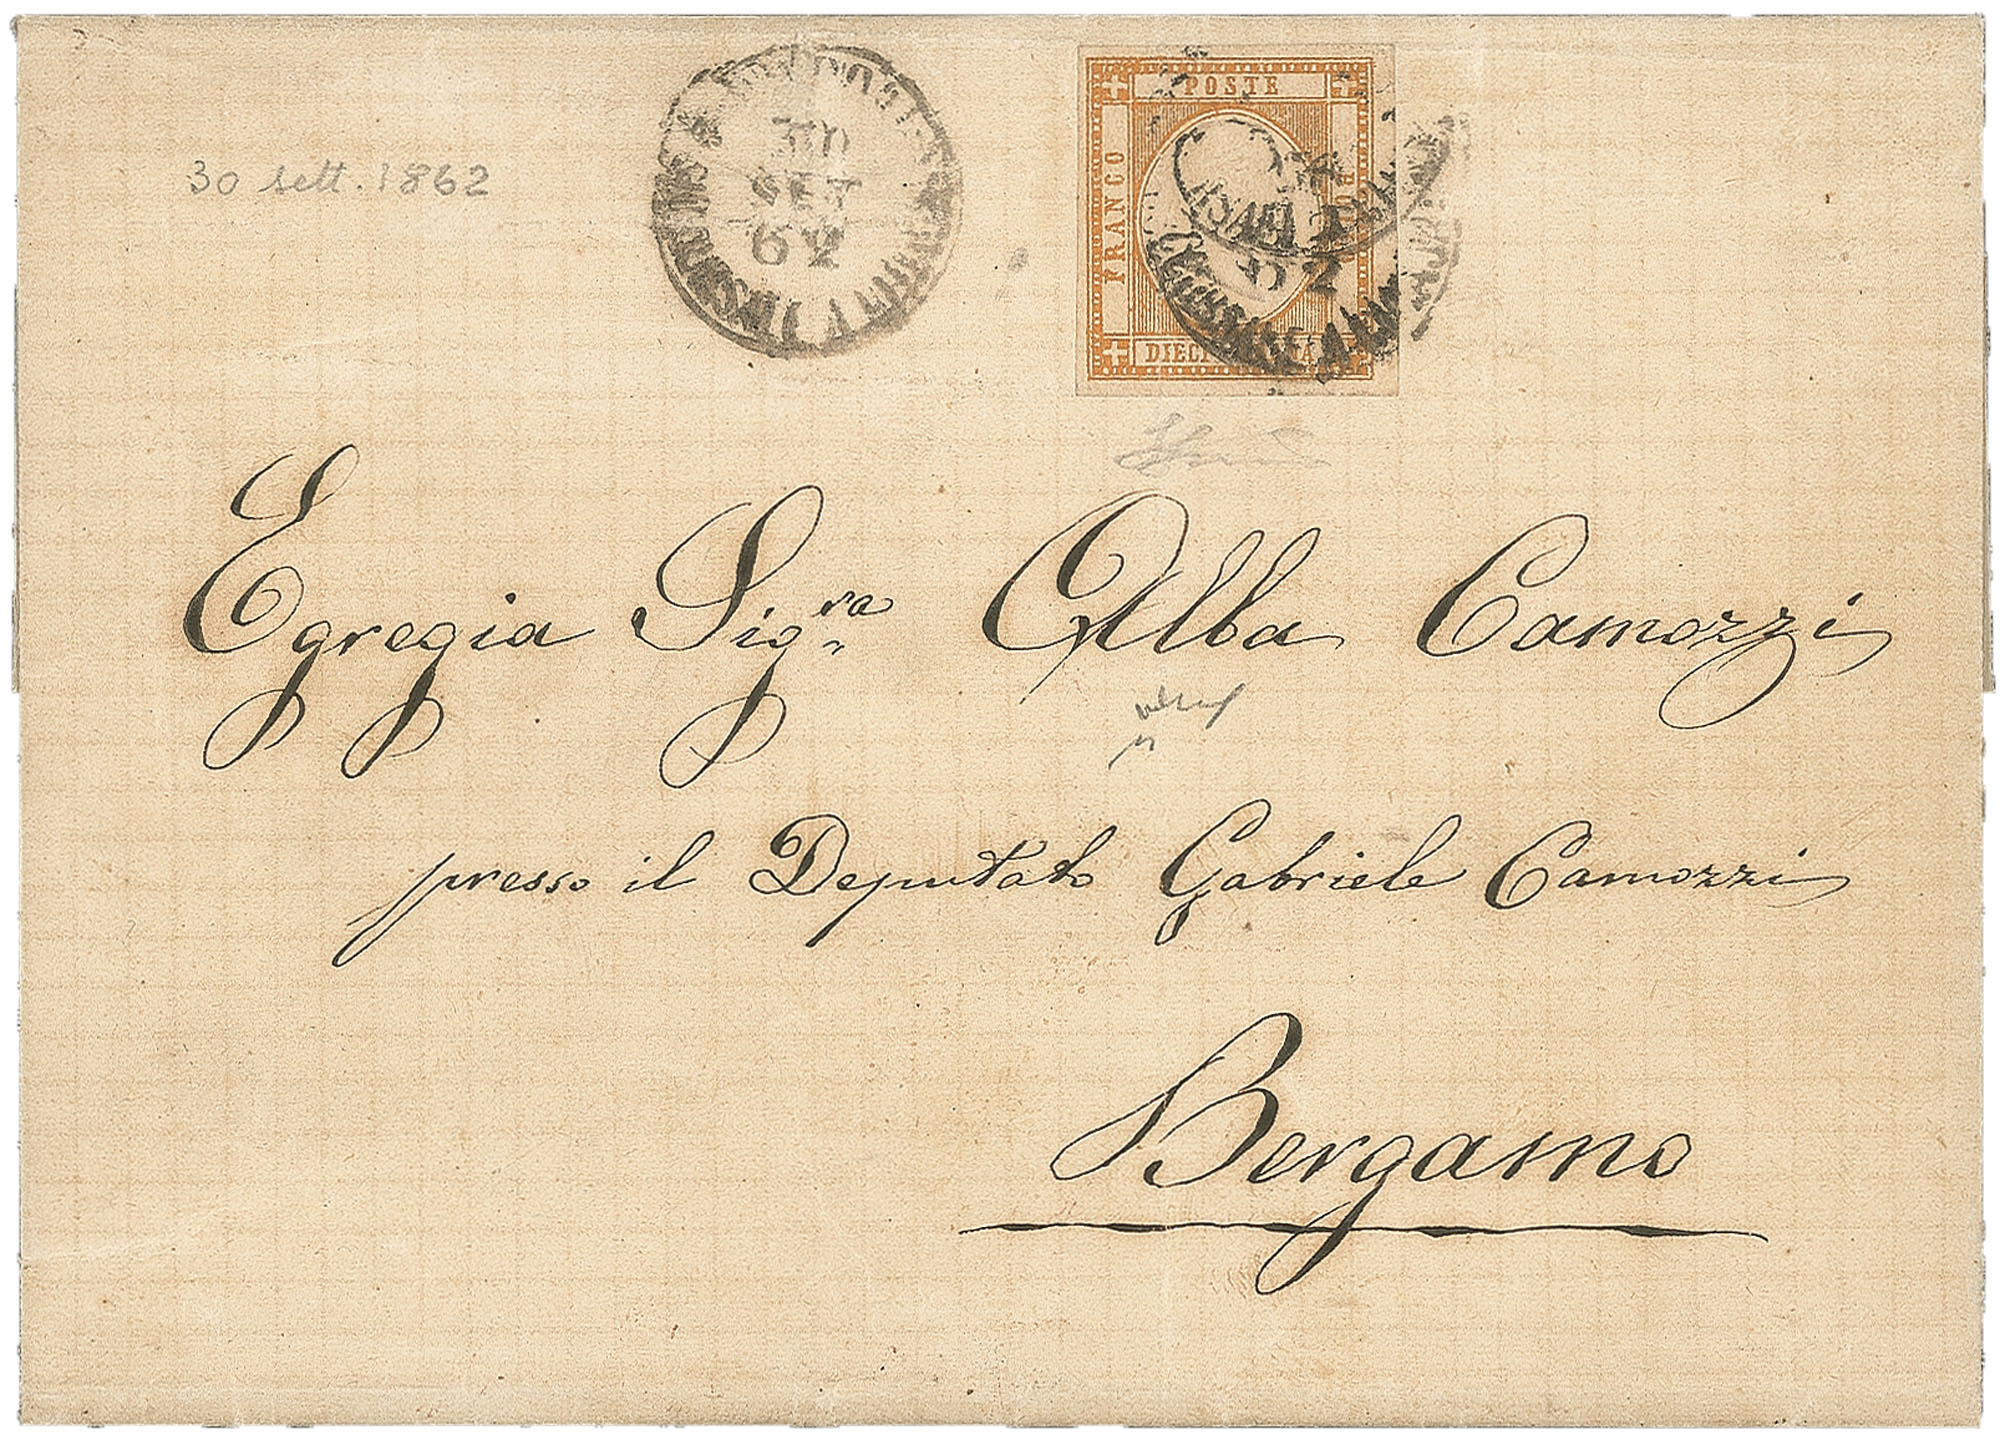 30 sett. 1862
30
SET
62
POSTE
FRANCO
Egregia Sig.ra Alba Camozzi
presso il Deputato Gabriele Camozzi
Bergamo